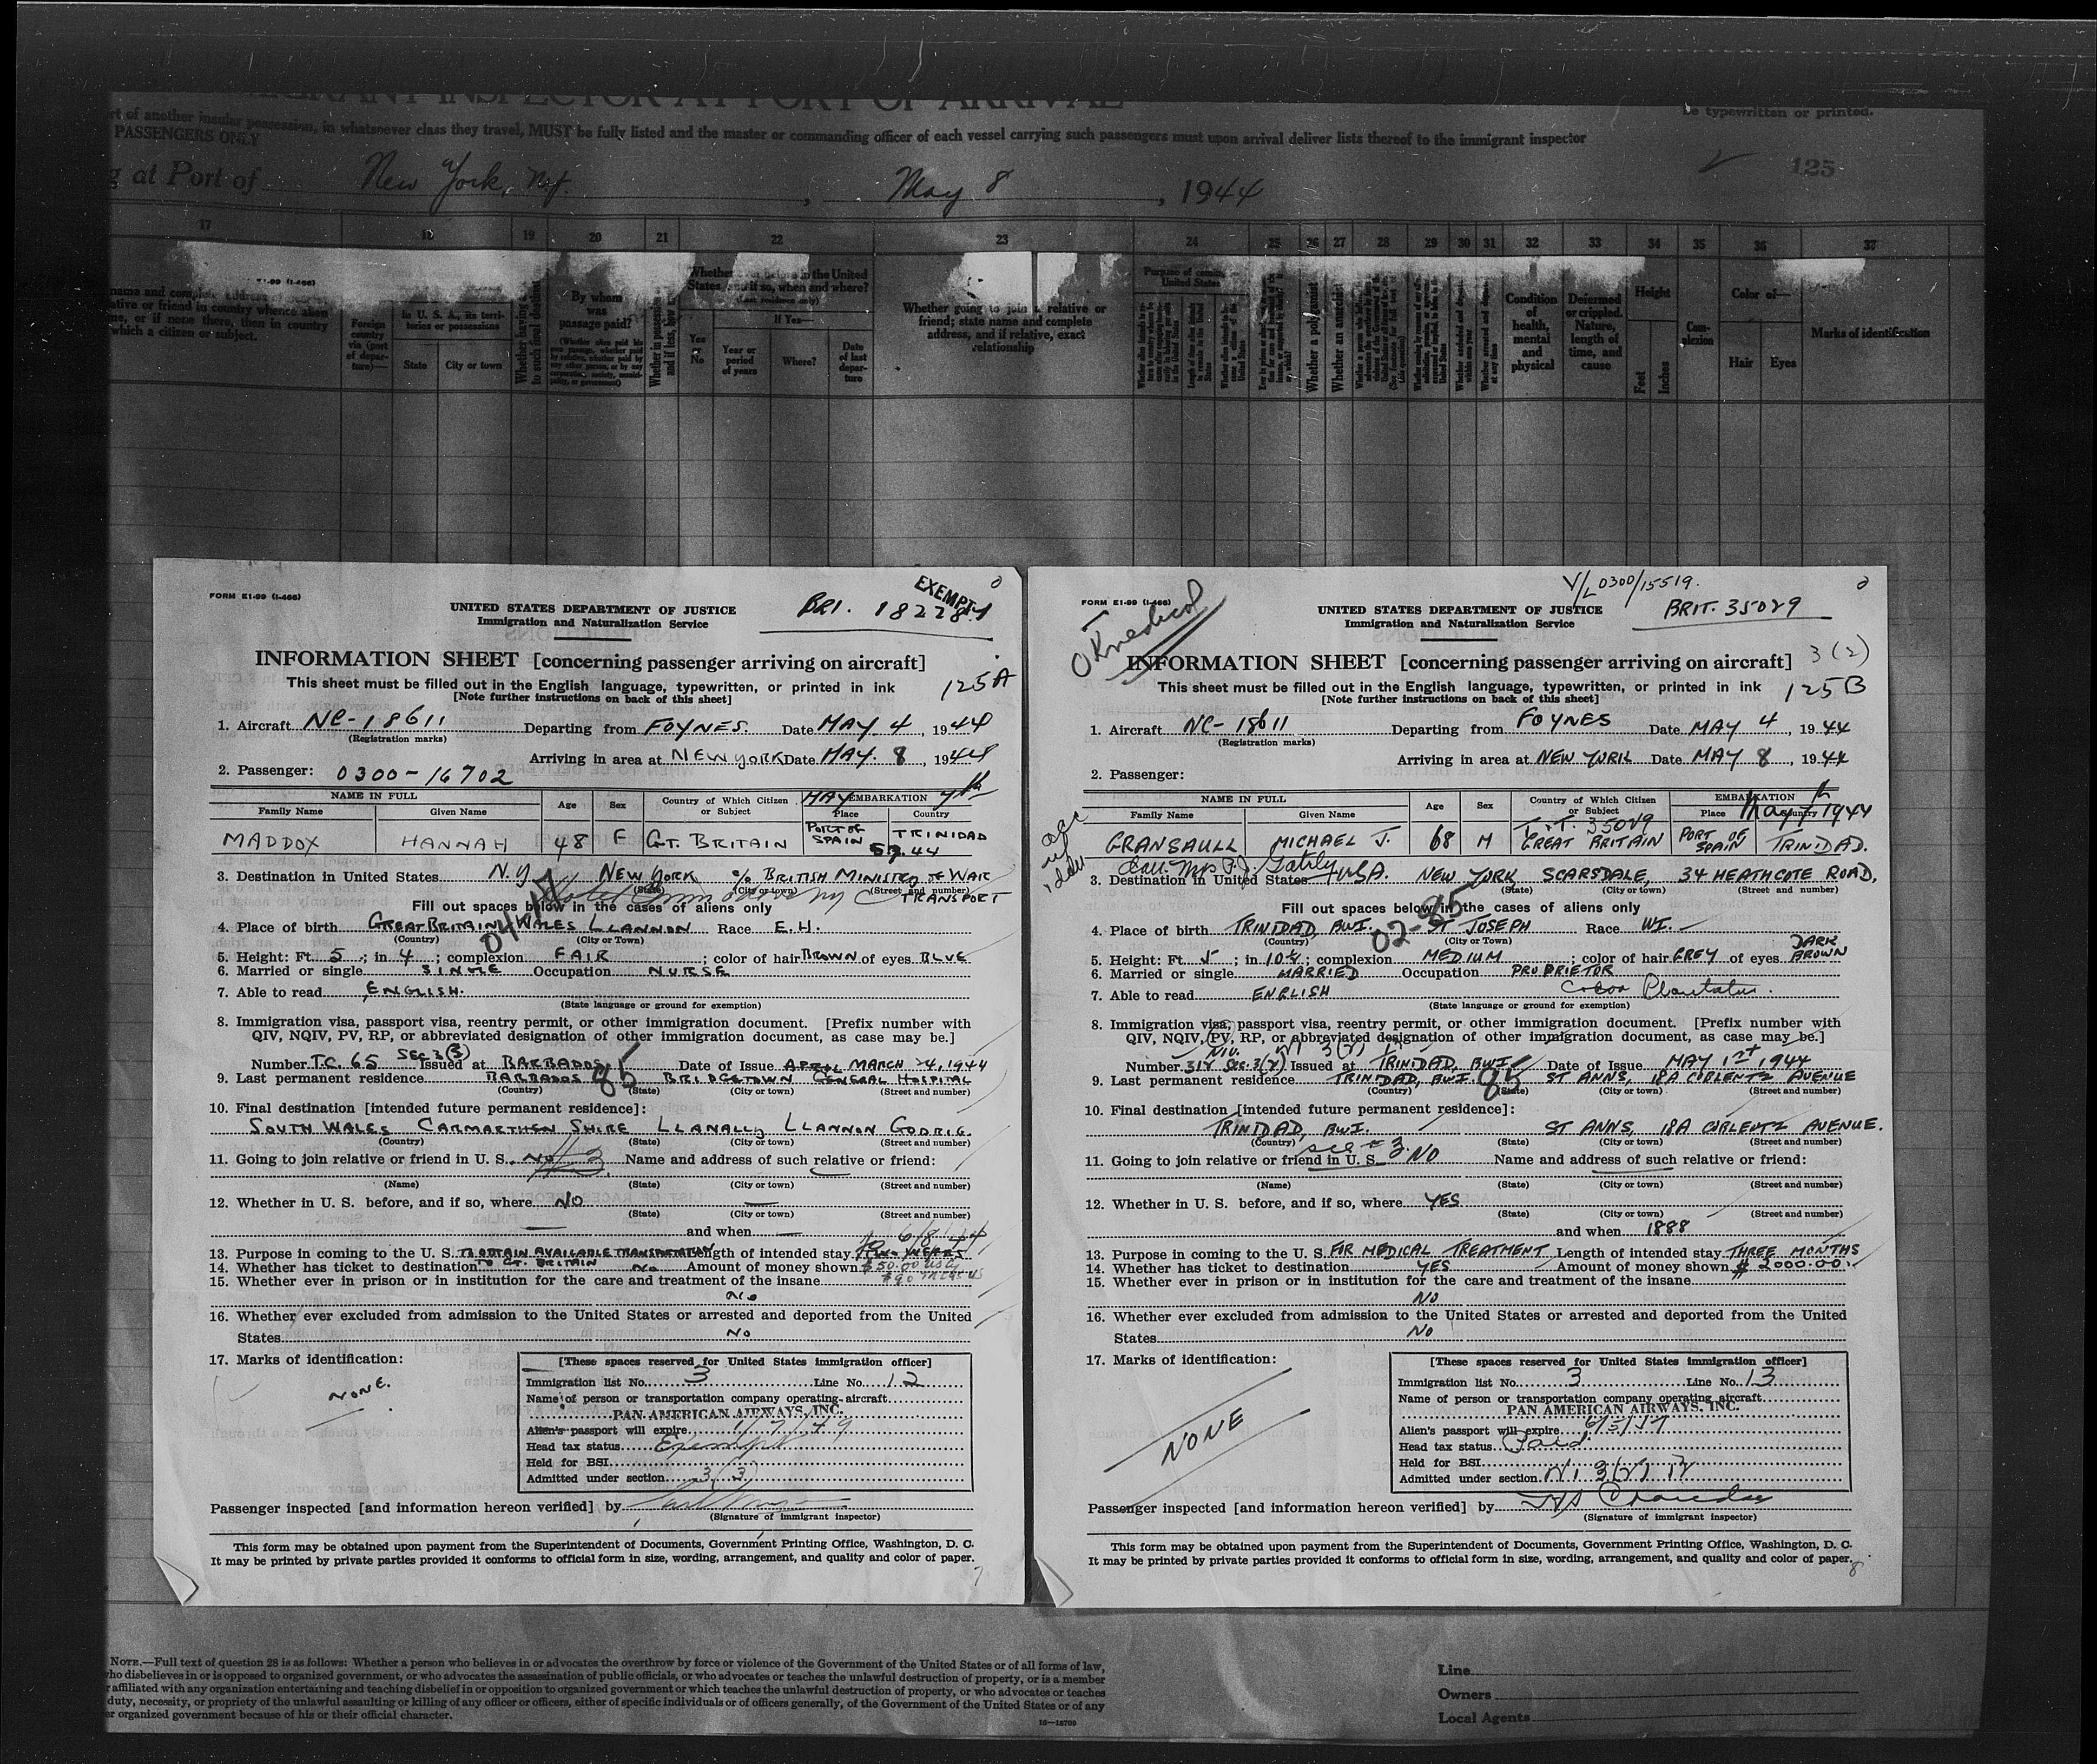 IGRANT INSPECTOR AT PORT OF ARRIVAL
be typewritten or printed.
rt of another insular possession, in whatsoever class they travel, MUST be fully listed and the master or commanding officer of each vessel carrying such passengers must upon arrival deliver lists thereof to the immigrant inspector
PASSENGERS ONLY
g at Port of New York, N.Y. , May 8 , 1944
125
17 18 19 20 21 22 23 24 25 26 27 28 29 30 31 32 33 34 35 36 37
name and complete address
ative or friend in country whence alien
me, or if none there, then in country
which a citizen or subject.
Foreign country via (port of departure)—
In U. S. A., its territories or possessions
State
City or town
By whom was passage paid?
Whether ever before in the United States, and if so, when and where?
Yes or No
If Yes—
Year or period of years
Where?
Date of last departure
Whether going to join a relative or friend; state name and complete address, and if relative, exact relationship
Purpose of coming United States
Whether a polygamist
Whether an anarchist
Condition of health, mental and physical
Deformed or crippled. Nature, length of time, and cause
Height
Feet
Inches
Complexion
Color of—
Hair
Eyes
Marks of identification
FORM E1-99 (I-466)
EXEMPT
UNITED STATES DEPARTMENT OF JUSTICE
Immigration and Naturalization Service
BRI. 182284
INFORMATION SHEET [concerning passenger arriving on aircraft]
This sheet must be filled out in the English language, typewritten, or printed in ink
125A
[Note further instructions on back of this sheet]
1. Aircraft NC-18611 Departing from FOYNES. Date MAY. 4 , 1944
(Registration marks)
Arriving in area at NEW YORK Date MAY. 8 , 1944
2. Passenger: 0300-16702
NAME IN FULL
Family Name
Given Name
Age
Sex
Country of Which Citizen or Subject
MAY 7th
EMBARKATION
Place
Country
MADDOX HANNAH 48 F GT. BRITAIN PORT OF SPAIN TRINIDAD
3. Destination in United States N.Y. NEW YORK % BRITISH MINISTRY OF WAR TRANSPORT
(State) (City or town) (Street and number)
Fill out spaces below in the cases of aliens only
4. Place of birth GREAT BRITAIN WALES LLANNON Race E.H.
(Country) (City or Town)
5. Height: Ft. 5 ; in 4 ; complexion FAIR ; color of hair BROWN of eyes BLUE
6. Married or single SINGLE Occupation NURSE
7. Able to read ENGLISH.
(State language or ground for exemption)
8. Immigration visa, passport visa, reentry permit, or other immigration document. [Prefix number with
QIV, NQIV, PV, RP, or abbreviated designation of other immigration document, as case may be.]
Number T.C. 65 SEC 3(3) Issued at BARBADOS Date of Issue APRIL MARCH 24, 1944
9. Last permanent residence BARBADOS 85 BRIDGETOWN GENERAL HOSPITAL
(Country) (State) (City or town) (Street and number)
10. Final destination [intended future permanent residence]:
SOUTH WALES CARMARTHEN SHIRE LLANALLY LLANNON GODRIG
(Country) (State) (City or town) (Street and number)
11. Going to join relative or friend in U. S. No Name and address of such relative or friend:
(Name) (State) (City or town) (Street and number)
12. Whether in U. S. before, and if so, where NO
(State) (City or town) (Street and number)
and when
to 6/8/44
13. Purpose in coming to the U. S. TO OBTAIN AVAILABLE TRANSPORTATION TO GT. BRITAIN Length of intended stay
14. Whether has ticket to destination NO Amount of money shown $50.00
15. Whether ever in prison or in institution for the care and treatment of the insane
NO
16. Whether ever excluded from admission to the United States or arrested and deported from the United
States NO
17. Marks of identification:
NONE.
[These spaces reserved for United States immigration officer]
Immigration list No. 3 Line No. 12
Name of person or transportation company operating aircraft
PAN AMERICAN AIRWAYS, INC.
Alien's passport will expire 1/7/49
Head tax status Exempt
Held for BSI
Admitted under section 3(3)
Passenger inspected [and information hereon verified] by
(Signature of immigrant inspector)
This form may be obtained upon payment from the Superintendent of Documents, Government Printing Office, Washington, D. C.
It may be printed by private parties provided it conforms to official form in size, wording, arrangement, and quality and color of paper.
7
FORM E1-99 (I-466)
OK medical
V/L 0300/15519.
UNITED STATES DEPARTMENT OF JUSTICE
Immigration and Naturalization Service
BRIT. 35029
INFORMATION SHEET [concerning passenger arriving on aircraft]
3(2)
This sheet must be filled out in the English language, typewritten, or printed in ink
125B
[Note further instructions on back of this sheet]
1. Aircraft NC-18611 Departing from FOYNES Date MAY 4 , 1944
(Registration marks)
Arriving in area at NEW YORK Date MAY 8 , 1944
2. Passenger:
NAME IN FULL
Family Name
Given Name
Age
Sex
Country of Which Citizen or Subject
EMBARKATION
Place
Country
May 7th 1944
T.T. 35029
GRANSAULL MICHAEL J. 68 M GREAT BRITAIN PORT OF SPAIN TRINIDAD.
3. Destination in United States USA. NEW YORK SCARSDALE, 34 HEATHCOTE ROAD.
(State) (City or town) (Street and number)
Fill out spaces below in the cases of aliens only
4. Place of birth TRINIDAD, BWI. 02-85 ST JOSEPH Race WI.
(Country) (City or Town)
5. Height: Ft. 5 ; in 10½ ; complexion MEDIUM ; color of hair GREY of eyes DARK BROWN
6. Married or single MARRIED Occupation PROPRIETOR
Cocoa Plantation.
7. Able to read ENGLISH
(State language or ground for exemption)
8. Immigration visa, passport visa, reentry permit, or other immigration document. [Prefix number with
QIV, NQIV, PV, RP, or abbreviated designation of other immigration document, as case may be.]
Number 318 Sec. 3(2) Issued at TRINIDAD, BWI Date of Issue MAY 1ST 1944
9. Last permanent residence TRINIDAD, BWI. 85 ST ANNS, 18A COBLENTZ AVENUE
(Country) (State) (City or town) (Street and number)
10. Final destination [intended future permanent residence]:
TRINIDAD, BWI. ST ANNS, 18A COBLENTZ AVENUE.
(Country) (State) (City or town) (Street and number)
see # 3
11. Going to join relative or friend in U. S. NO Name and address of such relative or friend:
(Name) (State) (City or town) (Street and number)
12. Whether in U. S. before, and if so, where YES
(State) (City or town) (Street and number)
and when 1888
13. Purpose in coming to the U. S. FOR MEDICAL TREATMENT Length of intended stay THREE MONTHS
14. Whether has ticket to destination YES Amount of money shown $ 2000.00.
15. Whether ever in prison or in institution for the care and treatment of the insane
NO
16. Whether ever excluded from admission to the United States or arrested and deported from the United
States NO
17. Marks of identification:
NONE
[These spaces reserved for United States immigration officer]
Immigration list No. 3 Line No. 13
Name of person or transportation company operating aircraft
PAN AMERICAN AIRWAYS, INC.
Alien's passport will expire
Head tax status Paid
Held for BSI
Admitted under section 3(2)
Passenger inspected [and information hereon verified] by
(Signature of immigrant inspector)
This form may be obtained upon payment from the Superintendent of Documents, Government Printing Office, Washington, D. C.
It may be printed by private parties provided it conforms to official form in size, wording, arrangement, and quality and color of paper.
8
NOTE.—Full text of question 28 is as follows: Whether a person who believes in or advocates the overthrow by force or violence of the Government of the United States or of all forms of law,
who disbelieves in or is opposed to organized government, or who advocates the assassination of public officials, or who advocates or teaches the unlawful destruction of property, or is a member
r affiliated with any organization entertaining and teaching disbelief in or opposition to organized government or which teaches the unlawful destruction of property, or who advocates or teaches
duty, necessity, or propriety of the unlawful assaulting or killing of any officer or officers, either of specific individuals or of officers generally, of the Government of the United States or of any
er organized government because of his or their official character.
16—18709
Line
Owners
Local Agents